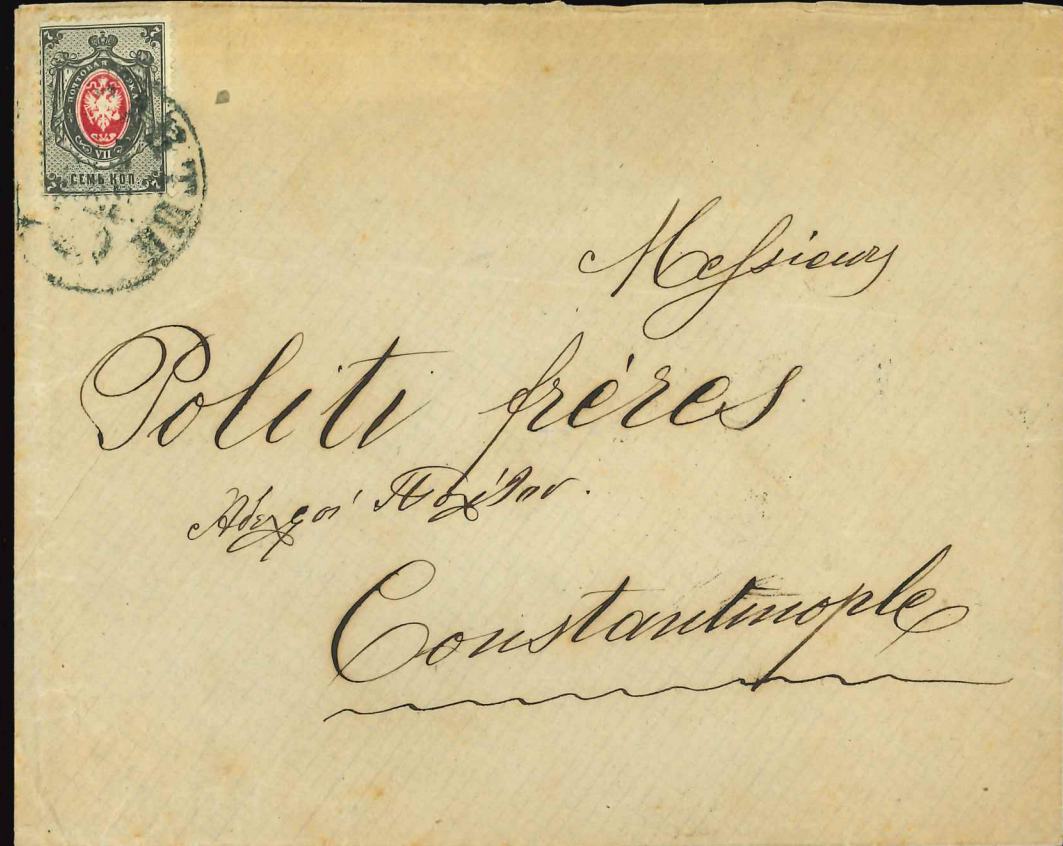 ПОЧТОВАЯ МАРКА
VII
СЕМЬ КОП.
Messieurs
Politi frères
Ἀδελφοί
Constantinople